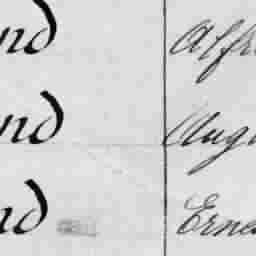 nd Alfr
nd Aug
nd Erne